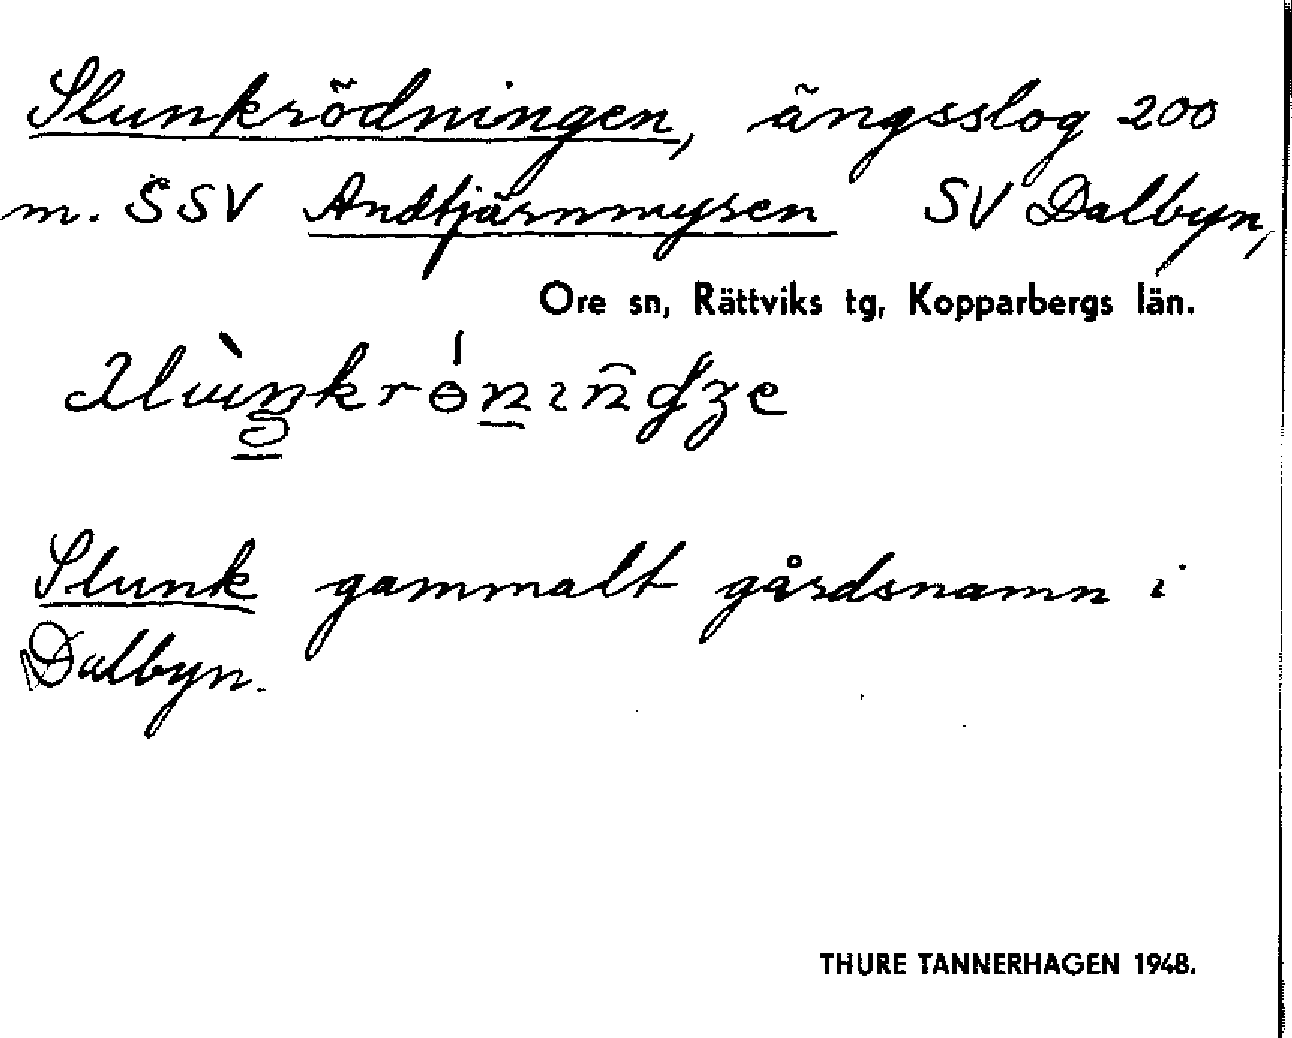 Slunkrödningen, ängsslog 200
m. SSV Andtjärnmyren SV Dalbyn,
Ore sn, Rättviks tg, Kopparbergs län.
Slunk gammalt gårdsnamn i
Dalbyn.
THURE TANNERHAGEN 1948.